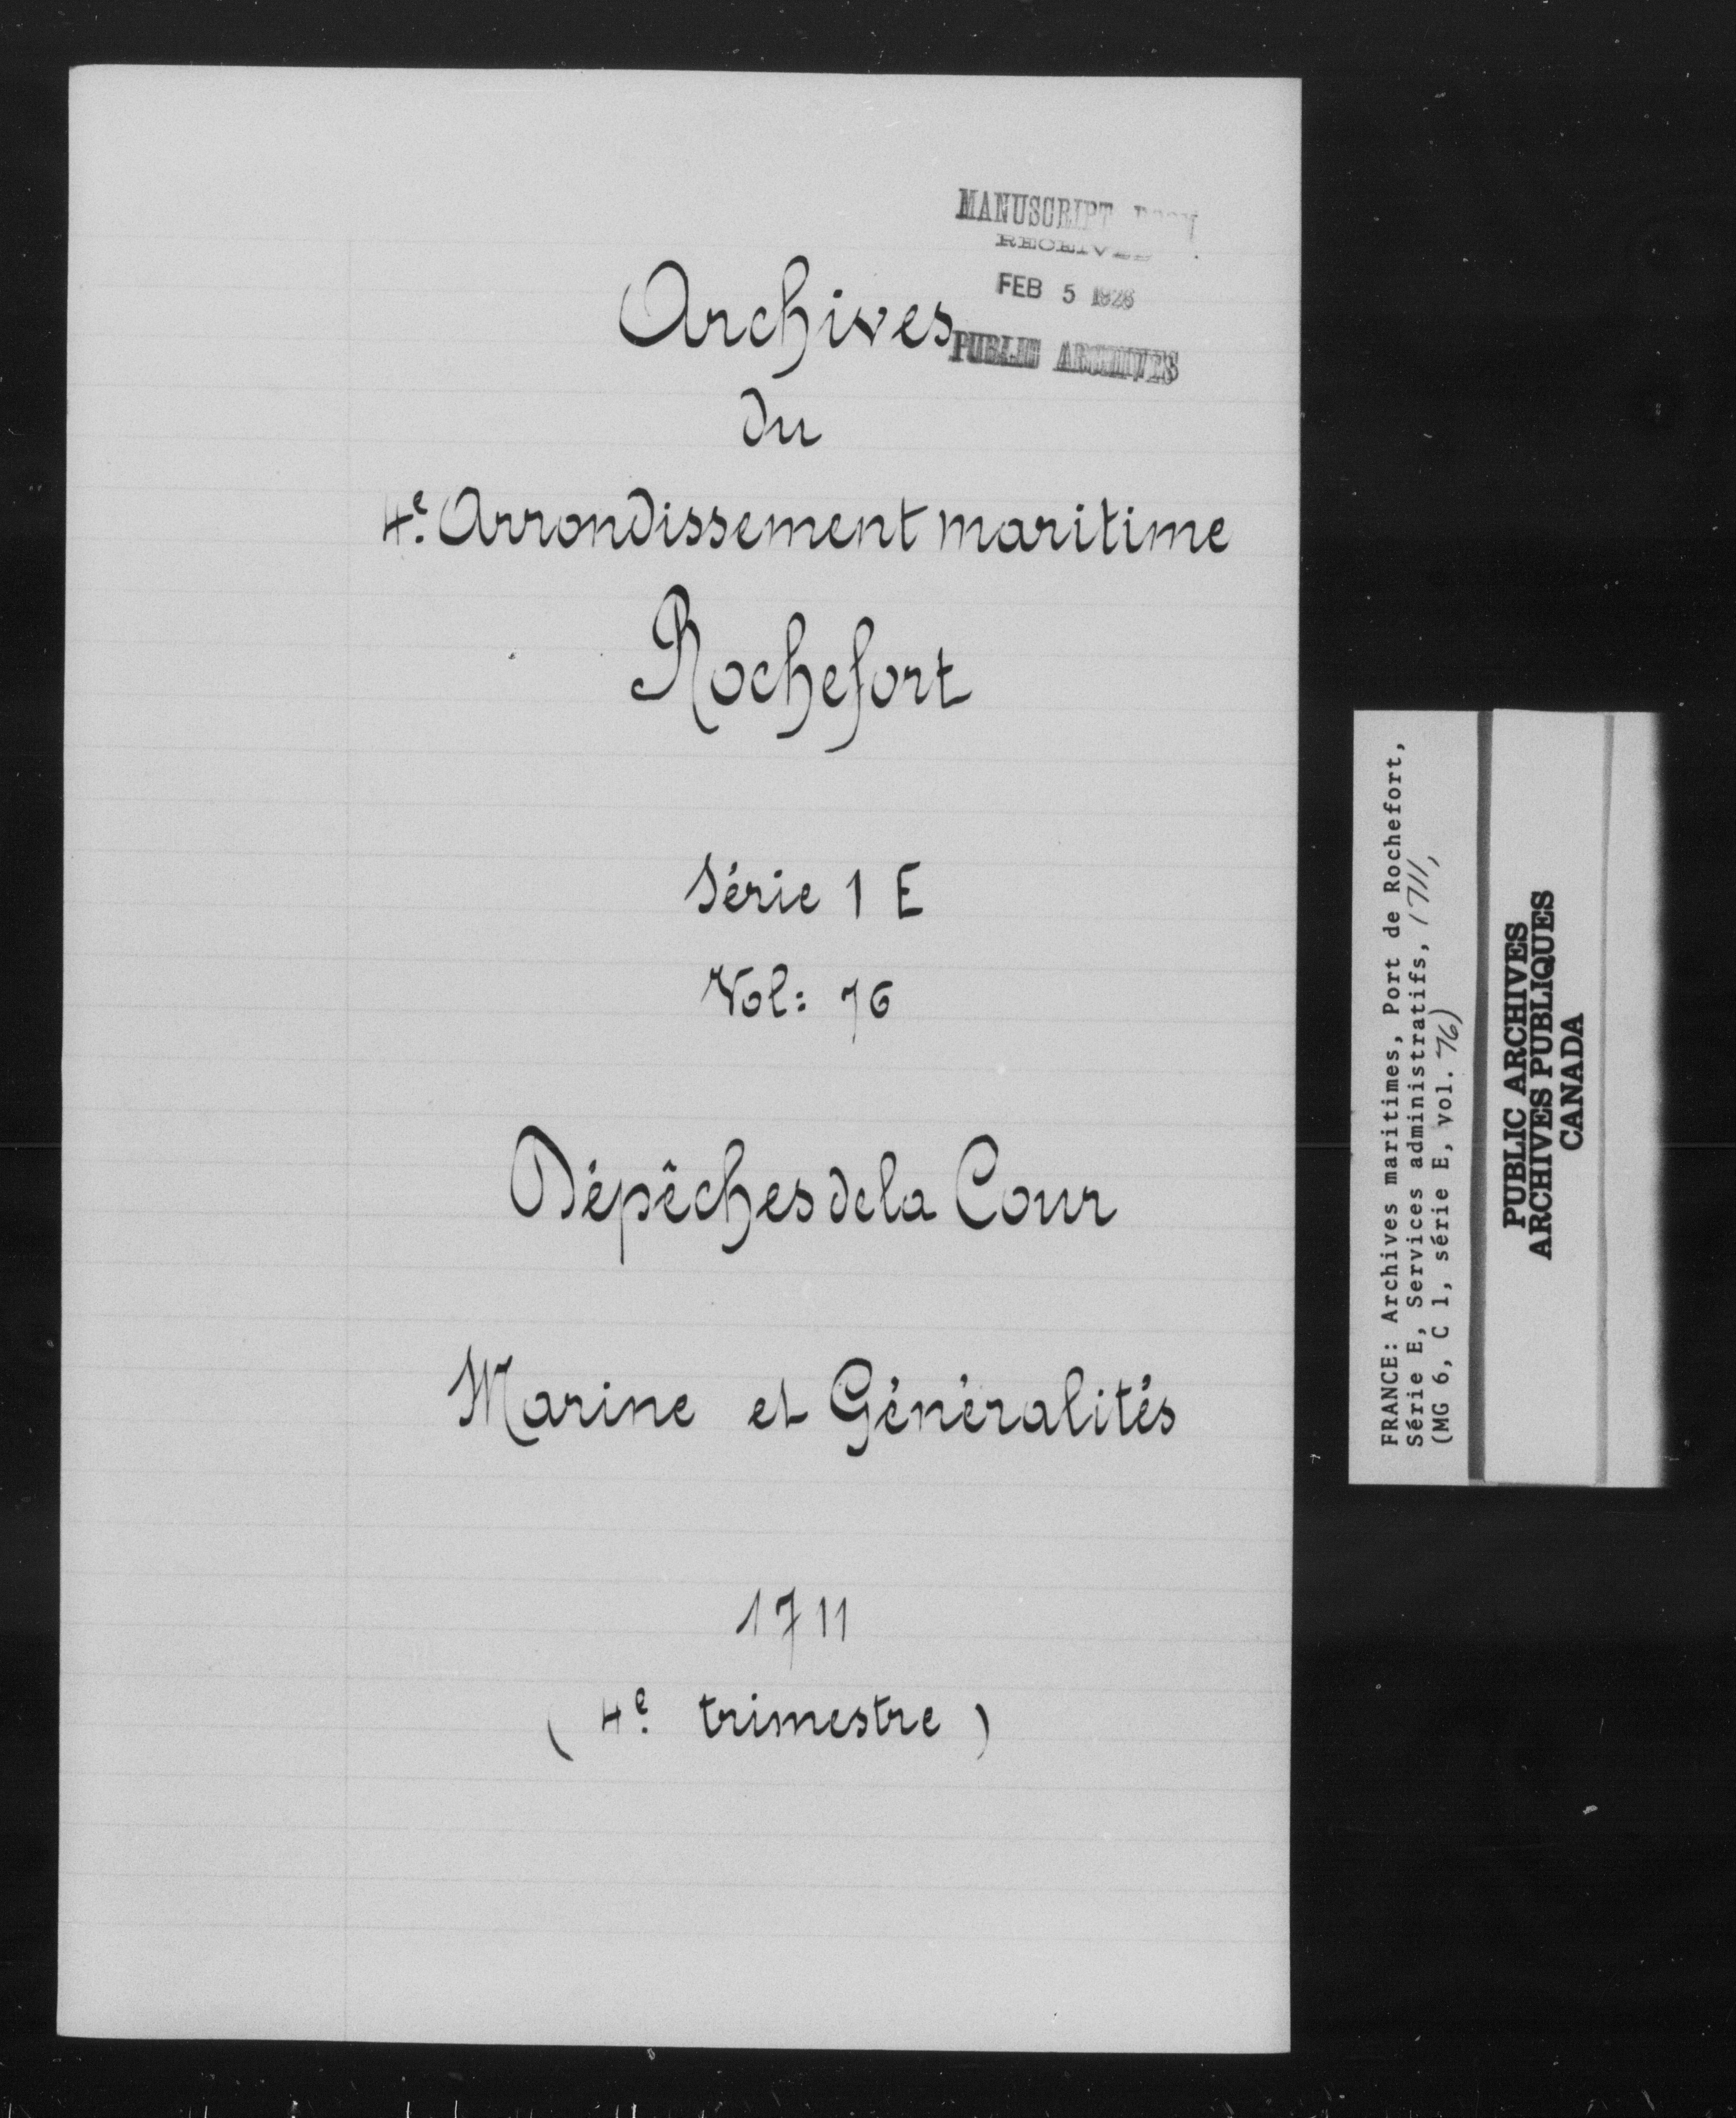 MANUSCRIPT
RECEIVED
FEB 5 1926
PUBLIC ARCHIVES
Archives
du
4e. Arrondissement maritime
Rochefort
Série 1 E
Vol: 76
Dépêches de la Cour
Marine et Généralités
1711
(4e. trimestre)
FRANCE: Archives maritimes, Port de Rochefort,
Série E, Services administratifs, 1711,
(MG 6, C 1, série E, vol. 76)
PUBLIC ARCHIVES
ARCHIVES PUBLIQUES
CANADA